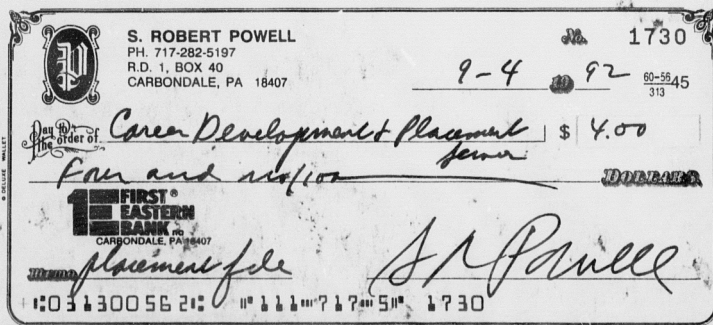 S. ROBERT POWELL
PH. 717-282-5197
R.D. 1, BOX 40
CARBONDALE, PA 18407
No. 1730
9-4 19 92
60-56 45
313
Pay to the order of Career Development & Placement Service $ 4.00
Four and no/100 DOLLARS
1E FIRST EASTERN BANK
CARBONDALE, PA 18407
Memo placement file S R Powell
⑆031300562⑆ ⑈111⑈717⑈5⑈ 1730
DELUXE WALLET